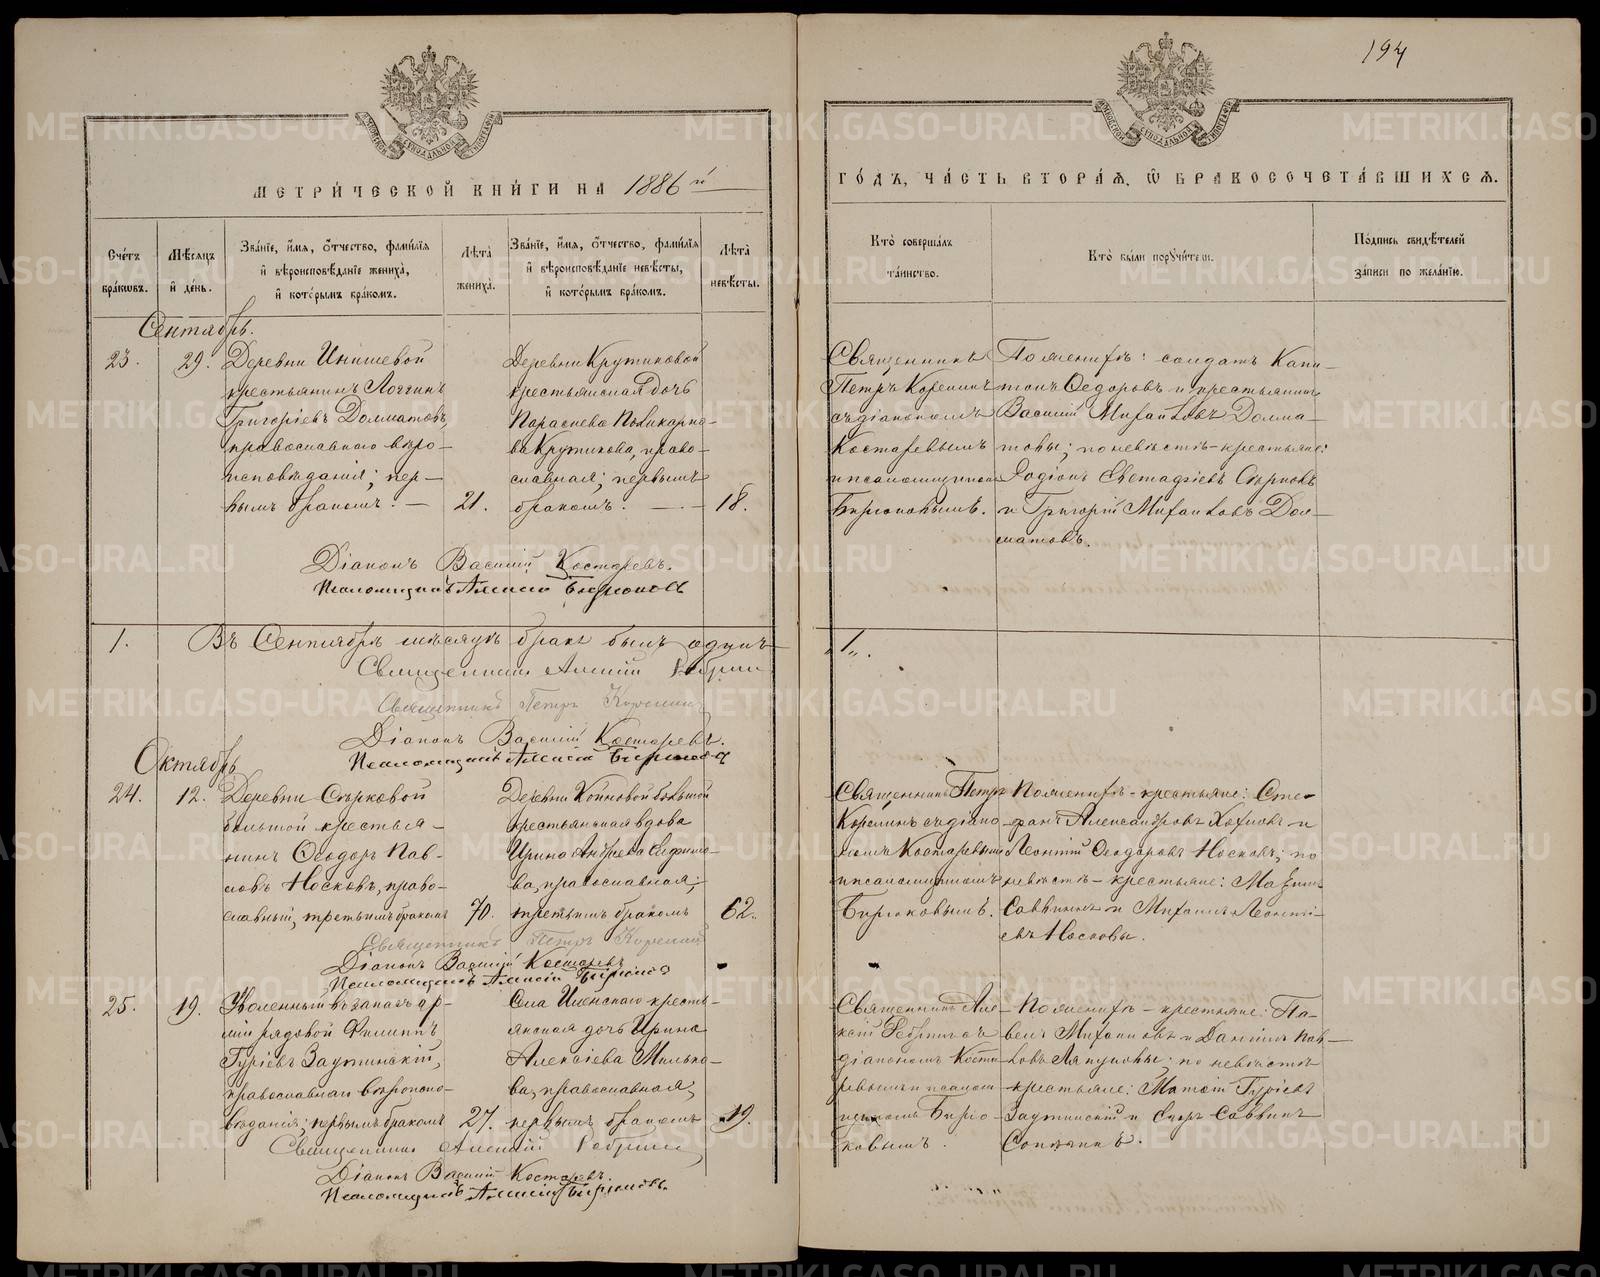 194
МЕТРИ́ЧЕСКОЙ КНИ́ГИ НА 1886 й
ГО́ДЪ, ЧА́СТЬ ВТОРА́Я, Ѿ БРАКОСОЧЕТА́ВШИХСѦ.
Сче́тъ бра́кѡвъ.
Мѣ́сѧцъ и҆ де́нь.
Зва́нїе, и҆́мѧ, ѻ҆́тчество, фамѝлїѧ и҆ вѣроисповѣ́данїе жениха̀, и҆ кото́рымъ бра́комъ.
Лѣ́та жениха̀.
Зва́нїе, и҆́мѧ, ѻ҆́тчество, фамѝлїѧ и҆ вѣроисповѣ́данїе невѣ́сты, и҆ кото́рымъ бра́комъ.
Лѣ́та невѣ́сты.
Кто̀ соверша́лъ та́инство.
Кто̀ бы́ли порꙋчи́тели.
По́дпись свидѣ́телей за́писи по жела́нїю.
Сентябрь.
23.
29.
Деревни Инишевой
крестьянинъ Логгинъ
Григоріевъ Долматовъ,
православнаго вѣро-
исповѣданія; пер-
вымъ бракомъ. —
21.
Деревни Крутиховой
крестьянская дочь
Параскева Поликарпо-
ва Крутихова, право-
славная; первымъ
бракомъ. —
18.
Священникъ
Петръ Корелинъ
съ діакономъ
Костаревымъ
и псаломщикомъ
Бирюковымъ.
По женихѣ: солдатъ Капи-
тонъ Ѳедоровъ и крестьянинъ
Василій Михайловъ Долма-
товы; по невѣстѣ - крестьяне:
Родіонъ Сырковъ
и Григорій Михайловъ Дол-
матовъ.
Діаконъ Василій Костаревъ.
Псаломщикъ Алексій Бирюковъ
1.
Въ Сентябрѣ мѣсяцѣ бракъ былъ одинъ
„1„.
Священникъ Алексій
Священникъ Петръ Корелинъ
Діаконъ Василій Костаревъ.
Псаломщикъ Алексій Бирюковъ
Октябрь
24.
12.
Деревни Сырковой
большой крестья-
нинъ Ѳеодоръ Пав-
ловъ Носковъ, право-
славный, третьимъ бракомъ
70.
большой
крестьянская вдова
Ирина Андреева
ва, православная;
третьимъ бракомъ
62.
Священникъ Петръ
Корелинъ съ діако-
номъ Костаревымъ
и псаломщикомъ
Бирюковымъ.
По женихѣ - крестьяне: Сте-
фанъ Александровъ и
Леонтій Ѳеодоровъ Носковъ; по
невѣстѣ - крестьяне:
Саввинъ и Михаилъ Леонті-
евъ Носковы.
Священникъ Петръ Корелинъ
Діаконъ Василій Костаревъ
Псаломщикъ Алексій Бирюковъ
25.
19.
Уволенный въ запасъ ар-
міи рядовой Филиппъ
Гуріевъ Заутинскій,
православнаго вѣроиспо-
вѣданія; первымъ бракомъ
27.
Села кресть-
янская дочь Ирина
Алексіева Милько-
ва, православная,
первымъ бракомъ
19.
Священникъ Але-
ксій съ
діакономъ Коста-
ревымъ и псалом-
щикомъ Бирю-
ковымъ.
По женихѣ - крестьяне: Па-
велъ Михайловъ и Даніилъ Пав-
ловъ Ляпуновы; по невѣстѣ
крестьяне: Гуріевъ
Заутинскій и Саввинъ
Священникъ Алексій
Діаконъ Василій Костаревъ.
Псаломщикъ Алексій Бирюковъ.
METRIKI.GASO-URAL.RU